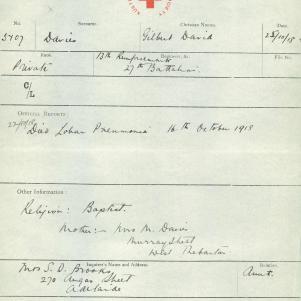 No. Surname. Christian Names. Date.
5407 Davies Gilbert David 25/10/18
Rank. Regiment, &c. File No.
Private 13th Reinforcements
27th Battalion
C/L
OFFICIAL REPORTS:
22/10/18 Died Lobar Pneumonia 16th October 1918
Other Information:
Religion: Baptist.
Mother:- Mrs M. Davies
Murray Street
West Thebarton
Inquirer's Name and Address. Relation.
Mrs S. D. Brooks, Aunt.
270 Angas Street
Adelaide